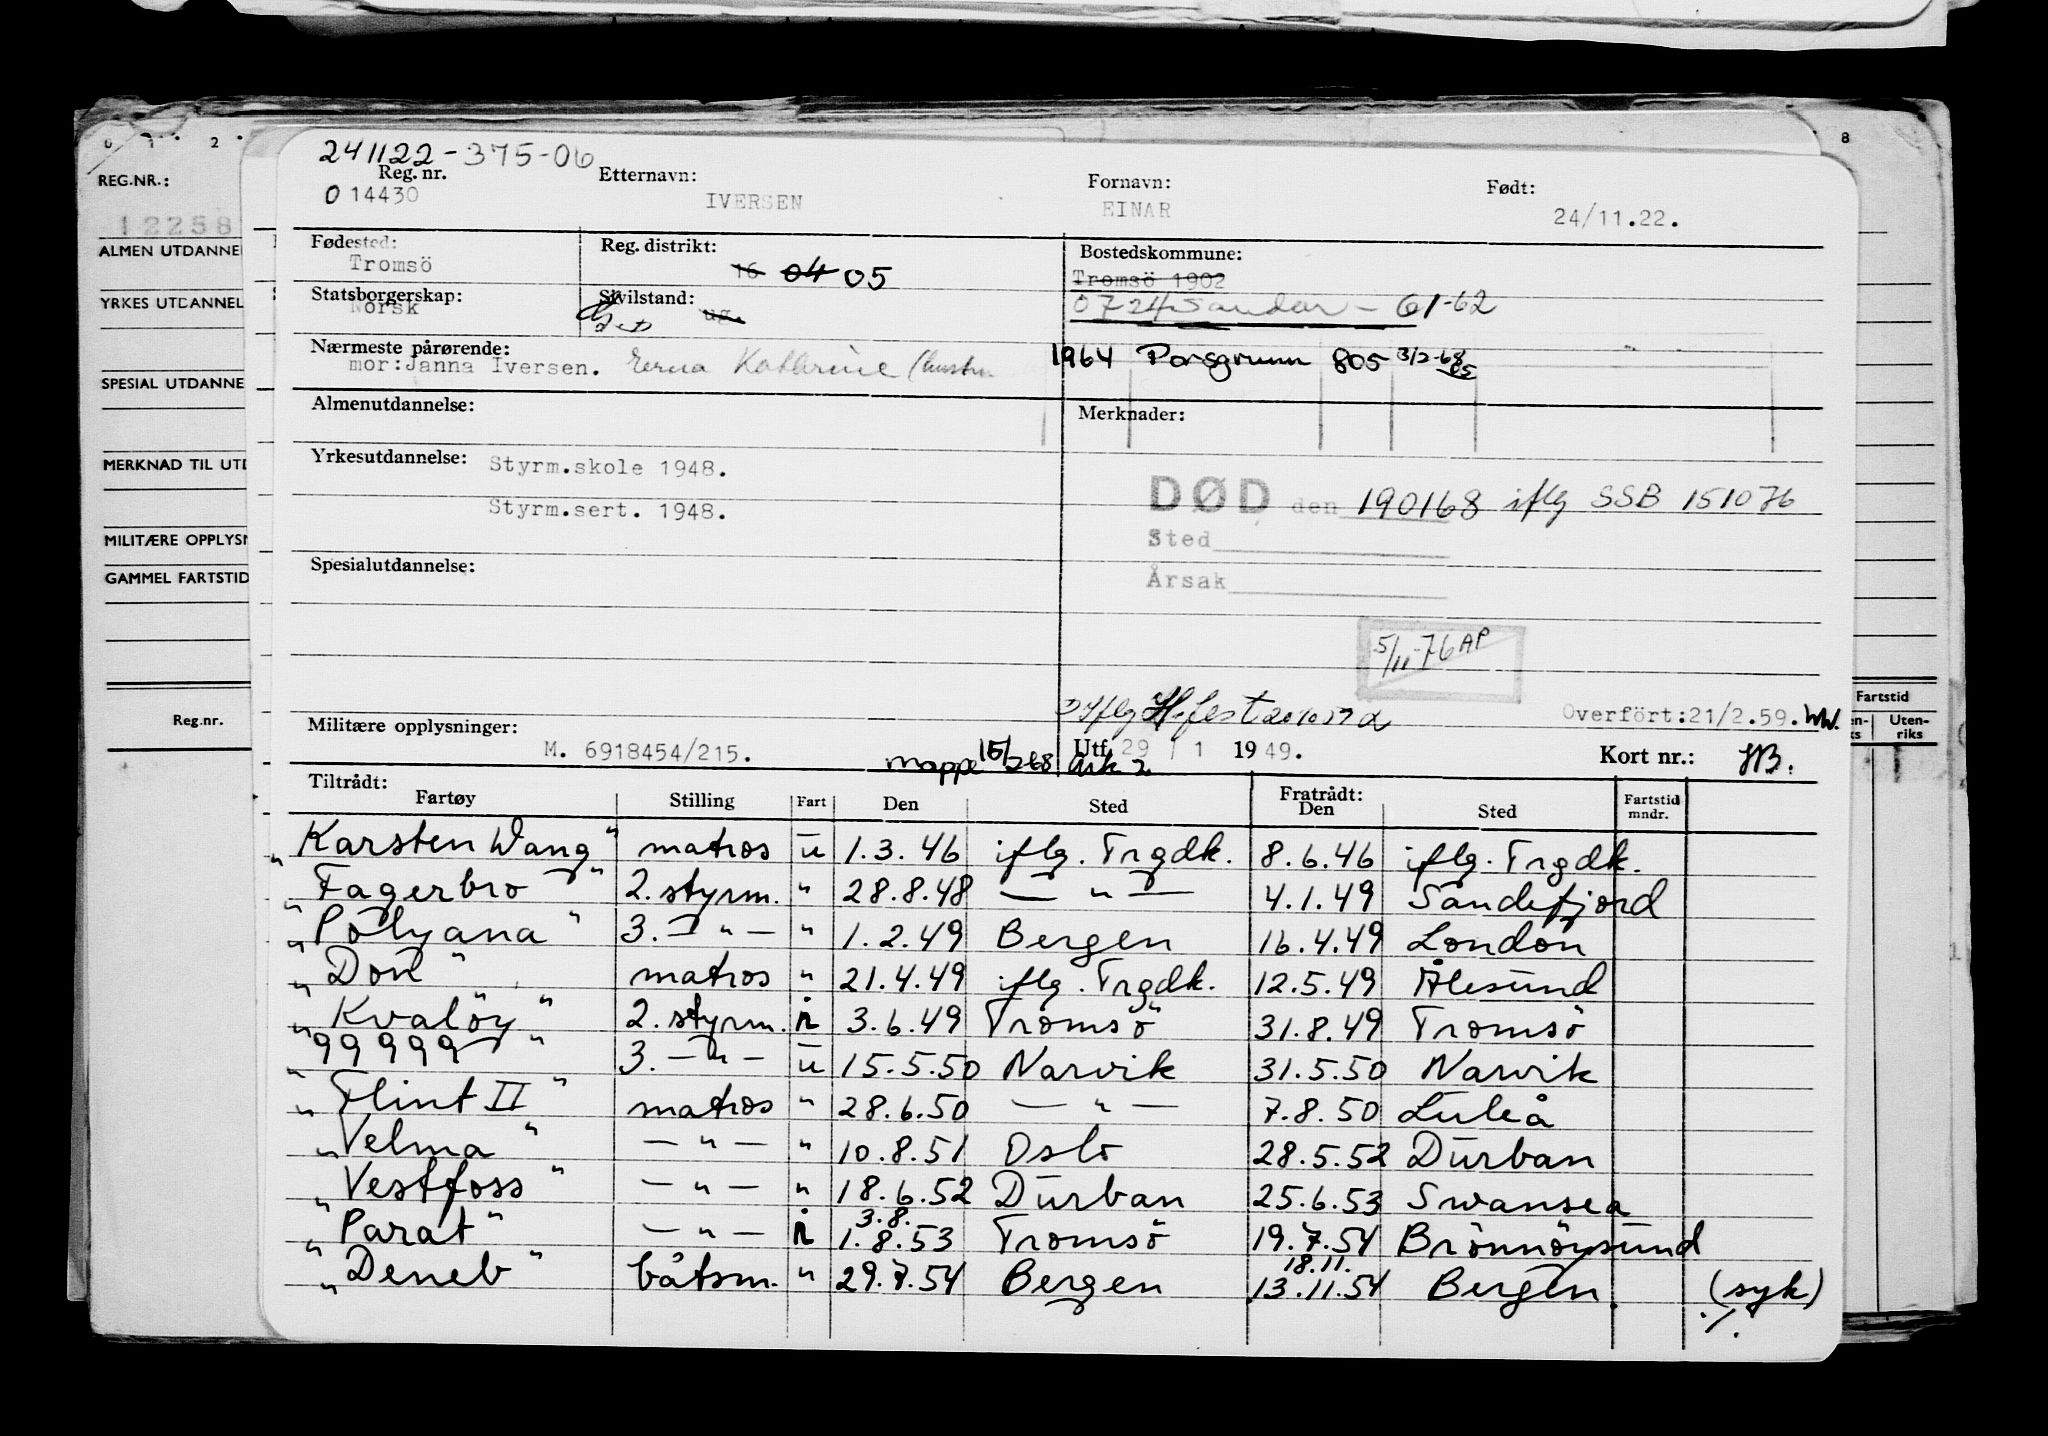 241122-375-06
Reg. nr. Etternavn: Fornavn: Født:
0 14430 IVERSEN EINAR 24/11.22.
Fødested: Reg. distrikt: Bostedskommune:
Tromsö 16 04 05 Tromsö 1902
Statsborgerskap: Sivilstand: 0724 Sandar - 61-62
Norsk ug. Gift
Nærmeste pårørende: 1964 Porsgrunn 805 3/2-68
mor:Janna Iversen. Erna Kathrine (hustru
Almenutdannelse: Merknader:
Yrkesutdannelse: Styrm.skole 1948.
Styrm.sert. 1948.
DØD den 190168 iflg SSB 151076
Sted
Årsak
Spesialutdannelse:
5/11-76 AP
Overfört:21/2.59. WW.
Militære opplysninger:
M. 6918454/215. mappe 15/2-68 Ark 2
Utf. 29 / 1 1949. Kort nr.: HB.
Tiltrådt: Fratrådt:
Fartøy Stilling Fart Den Sted Den Sted Fartstid mndr.
"Karsten Wang" matros u 1.3.46 iflg. Trgdk. 8.6.46 iflg. Trgdk.
"Fagerbro" 2. styrm. " 28.8.48 — " — 4.1.49 Sandefjord
"Polyana" 3. — " — " 1.2.49 Bergen 16.4.49 London
"Don" matros " 21.4.49 iflg. Trgdk. 12.5.49 Ålesund
"Kvalöy" 2. styrm. i 3.6.49 Tromsö 31.8.49 Tromsö
"99999" 3. — " — u 15.5.50 Narvik 31.5.50 Narvik
"Flint II" matros " 28.6.50 — " — 7.8.50 Luleå
"Velma" — " — " 10.8.51 Oslo 28.5.52 Durban
"Vestfoss" — " — " 18.6.52 Durban 25.6.53 Swansea
"Parat" — " — i 3.8. 1.8.53 Tromsö 19.7.54 Brönnöysund
"Deneb" båtsm. " 29.7.54 Bergen 18.11. 13.11.54 Bergen. (syk)
./.
REG.NR.:
12258
ALMEN UTDANNEL
YRKES UTDANNEL
SPESIAL UTDANNE
MERKNAD TIL UTD
MILITÆRE OPPLYSN
GAMMEL FARTSTID
Reg.nr.
8
Fartstid
Uten-
riks